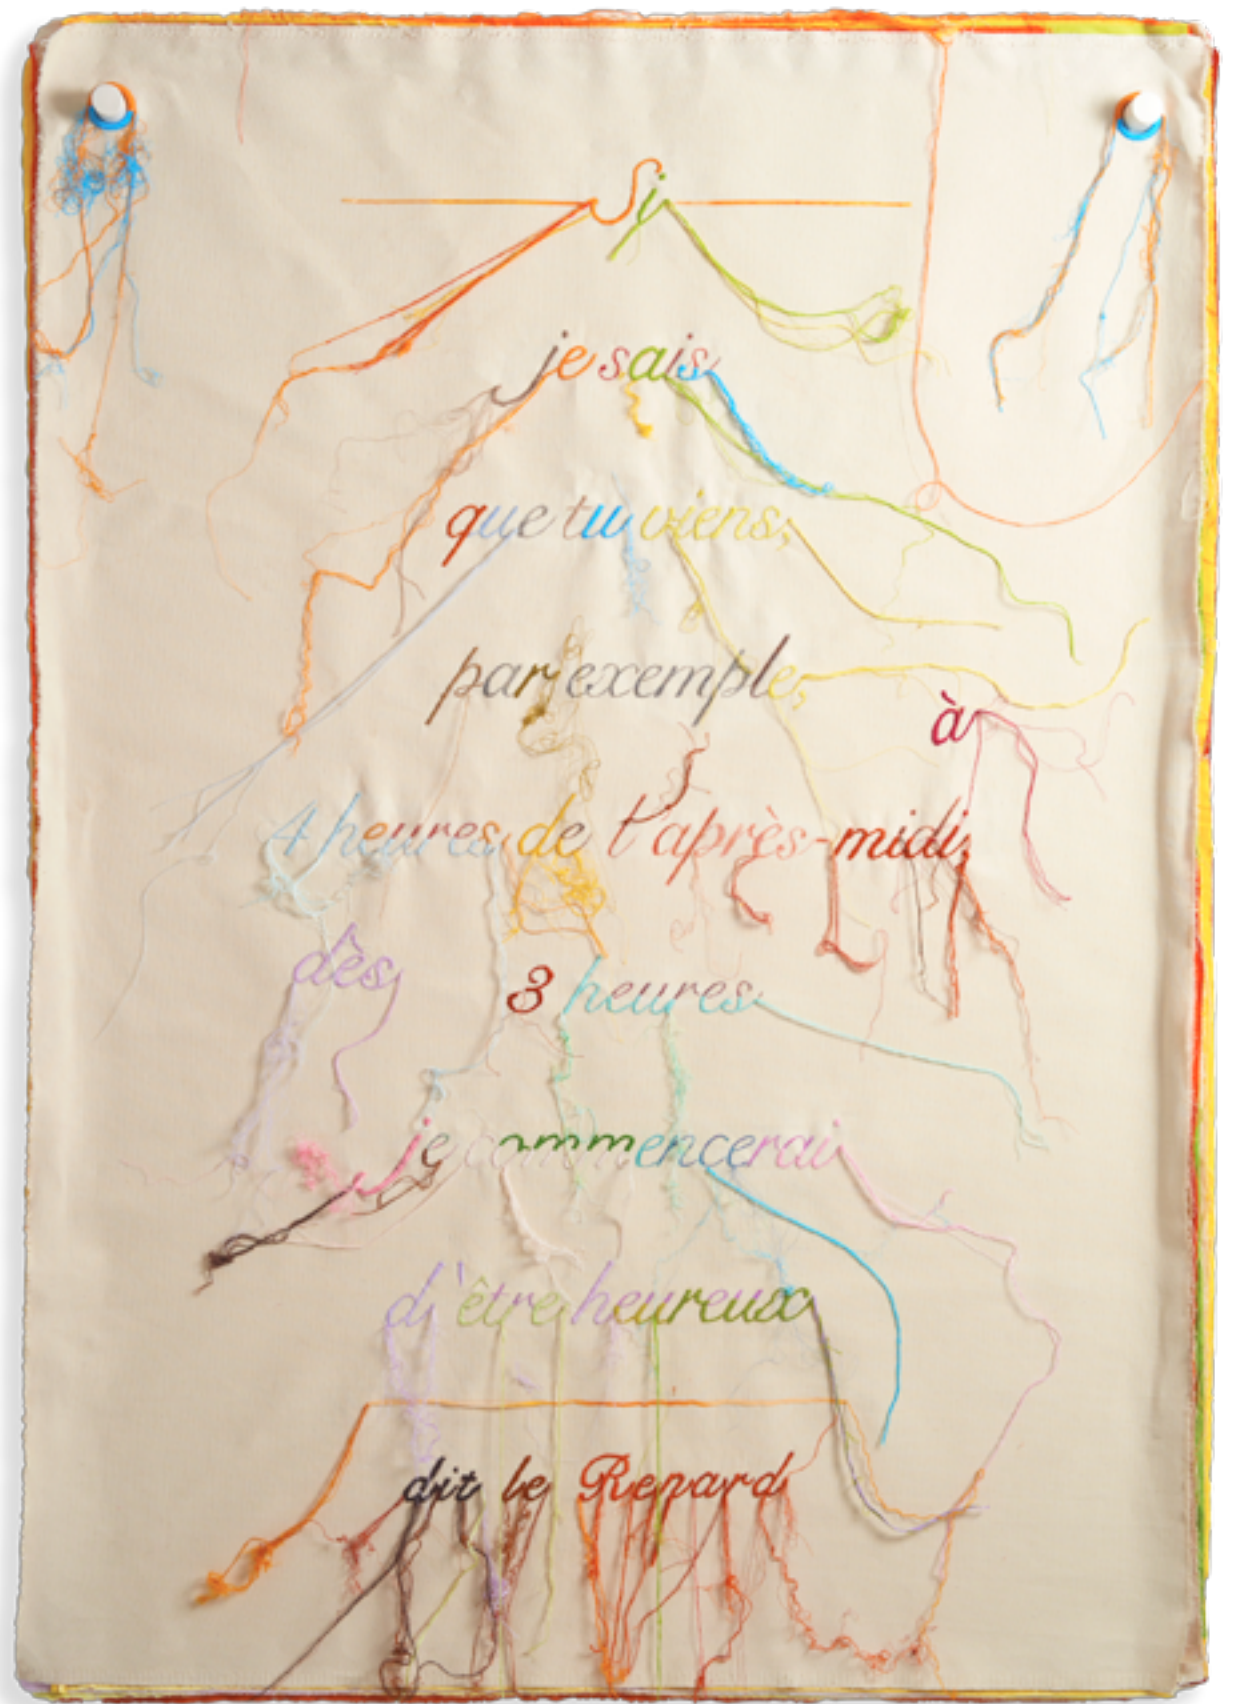 Si
je sais
que tu viens,
par exemple,
à
4 heures de l'après-midi,
dès
3 heures
je commencerai
d'être heureux
dit le Renard